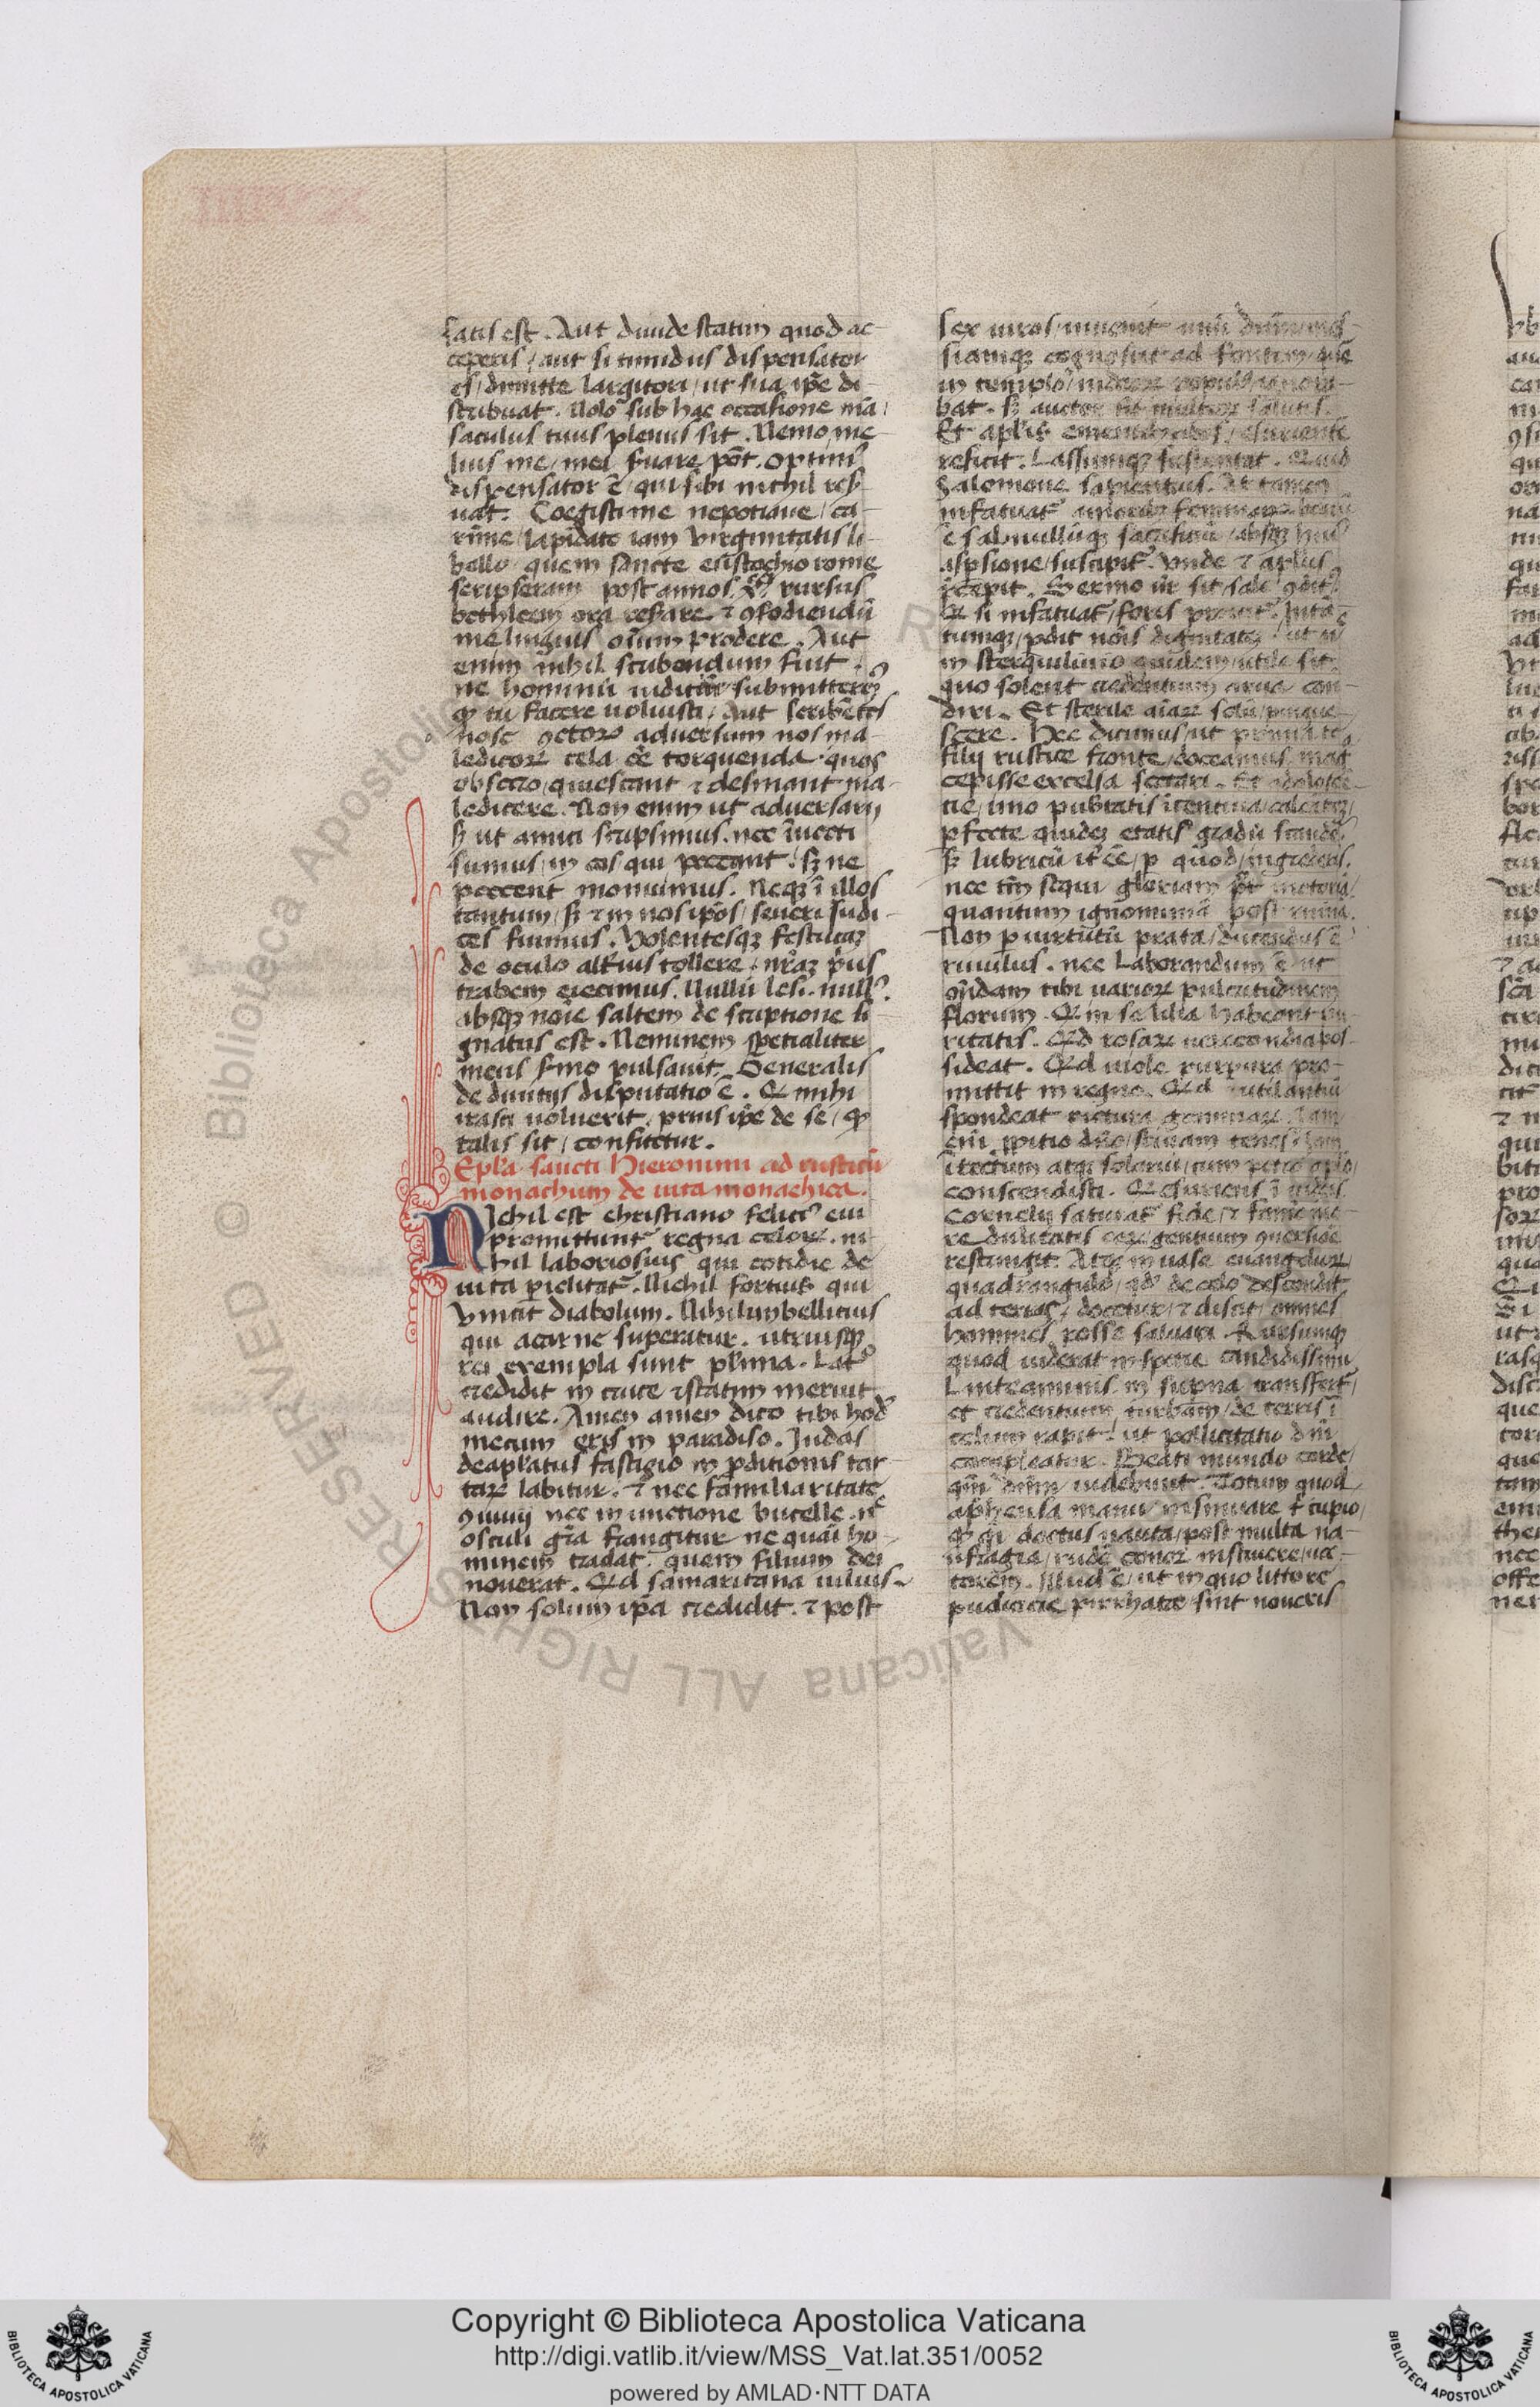 latus est. Aut diuide statim quod ac-
ceperis / aut si timidus dispensator
es / dimitte largitori / ut sua ip̄e di-
stribuat. Nolo sub hac occasione mā /
saculus tuus plenus sit. Nemo me-
lius me / mea s̄uare pōt. optim9
dispensator ē / qui sibi nichil res̄-
uat. Coegisti me nepotiane / ca-
rīme / lapidato iam virginitatis li-
bello / quem sancte eustochio rome
scripseram post annos rursus
bethleem ora reserare ⁊ 9fodiendū
me linguis oīum prodere. Aut
enim nihil scribendum fuit.
ne hominū iuditiū submitterem9
qd tu facere uoluisti / Aut scribētes
nosc 9ctorꝝ aduersum nos ma-
ledicorꝝ tela ēē torquenda. quos
obsecro / quiescant ⁊ desinant ma-
ledicere. Non enim ut aduersarij
sꝫ ut amici scripsimus. nec īuecti
sumus / in eos qui peccant. sꝫ ne
peccent monuimus. Neqꝫ ī illos
tantum / sꝫ ⁊ in nos ip̄os / seueri Judi-
ces fuimus. Volentesqꝫ festucaꝫ
de oculo alt̄ius tollere / nr̄aꝫ p̄us
trabem eiecimus. Nullū lesi. null9
absqꝫ noīe saltem de scriptione si-
gnatus est. Neminem spetialiter
meus s̄mo pulsauit. Generalis
de diuitijs disputatio ē. Qꝫ mihi
irasci uoluerit. prius ip̄e de se / qd
talis sit / confitetur.
Epl̄a sancti Hieronimi ad rusticū
monachum de uita monachica.
NIchil est christiano felici9 cui
promittunt̄ regna celorꝝ. ni-
hil laboriosius qui cotidie de
uita piclitat̄. Nichil fortius qui
vincit diabolum. Nihil imbellicius
qui a carne superatur. utriusqꝫ
rei exempla sunt pl̄ima. Lat̄o
credidit in cruce ⁊ statim meruit
audire. Amen amen dico tibi hod̄
mecum eris in paradiso. Judas
de apl̄atus fastigio in p̄ditionis tar-
tarꝝ labitur. ⁊ nec familiaritate
9uiuij nec in unctione bucelle. nc
osculi gr̄a frangitur ne quasi ho-
minem tradat. quem filium dei
nouerat. Qꝫd samaritana uilius.
Non solum ip̄a credidit. ⁊ post
sex uiros / inuenit unū dn̄m / mes-
siamqꝫ cognoscit ad fontem / quē
in templo / iudeorꝝ populus ignora-
bat. sꝫ auctor fit multorꝝ salutis.
Et apl̄is ementibus cibos / esurientē
reficit. Lassumqꝫ sustentat. Quid
Salomone sapientius. At tamen
infatuat̄
ē sal nullūqꝫ sacrificiū / absqꝫ hui9
aspsione / suscipit̄. vnde ⁊ aplus
p̄cepit. Sermo ur̄ sit sale 9dit9.
Qꝫ si infatuat̄ / foris proicit̄. Intā-
tumqꝫ / pdit nōis dignitateꝫ / ut n̄
in sterquilinio quidem / utile sit.
quo solent credentium arua con-
diri. Et sterile aīarꝝ solū / pingue-
scere. Hec dicimus / ut prima te
filij rustice fronte / doceamus maḡ
cepisse excelsa sectari. Et adolescē-
tie / imo pub̄tatis īcentiua / calcateꝫ /
pfecte quideꝫ etatis gradū scande.
sꝫ lubricū it̄ ēē / p quod / ingrederis.
nec tm̄ sequi gloriam p̄t uictoriā /
quantum ignominiā post ruinā.
Non p uirtutū prata / ducendus ē
riuulus. nec Laborandum ē ut
on̄dam tibi uariorꝝ pulcritudinem
florum. Qꝫ in se lilia habeant pu-
ritatis. Qꝫd rosarꝝ uerecondia pos-
sideat. Qꝫd uiole purpura / pro-
mittit in regno. Qꝫd rutilantiū
spondeat pictura gemmarꝝ. Iam
eni ppitio dn̄o / stiuam tenes. iam
ī tectum atqꝫ solariū / cum petro aplo
conscendisti. Qꝫ esuriens ī iudeis.
Cornelij saturat̄ fide / ⁊ famem ī-
cre dulitatis earꝝ gentium 9uersiōe
restinguit. Atqꝫ in uase euangeliorꝝ
quadrangulo / qd de celo descendit
ad terras / docetur / ⁊ discit / omnes
homines posse saluari. Rursumqꝫ
quod uiderat in specie candidissimi
Linteaminis in superna transfert̄ /
et credentium turbam / de terris ī
celum rapit / ut pollicitatio dn̄i
compleatur. Beati mundo corde /
qm̄ dn̄m uidebunt. Totum quod
aphensa manu / insinuare t̄ cupio /
qd qsi doctus nauta / post multa na-
ufragia / rudē conor instruere / uec-
torem. Illud ē / ut in quo littore
pudicicie pirrhate / sint noueris
Copyright © Biblioteca Apostolica Vaticana
http://digi.vatlib.it/view/MSS_Vat.lat.351/0052
powered by AMLAD·NTT DATA
BIBLIOTECA APOSTOLICA VATICANA
BIBLIOTECA APOSTOLICA VATICANA
© Biblioteca Apostolica Vaticana ALL RIGHTS RESERVED